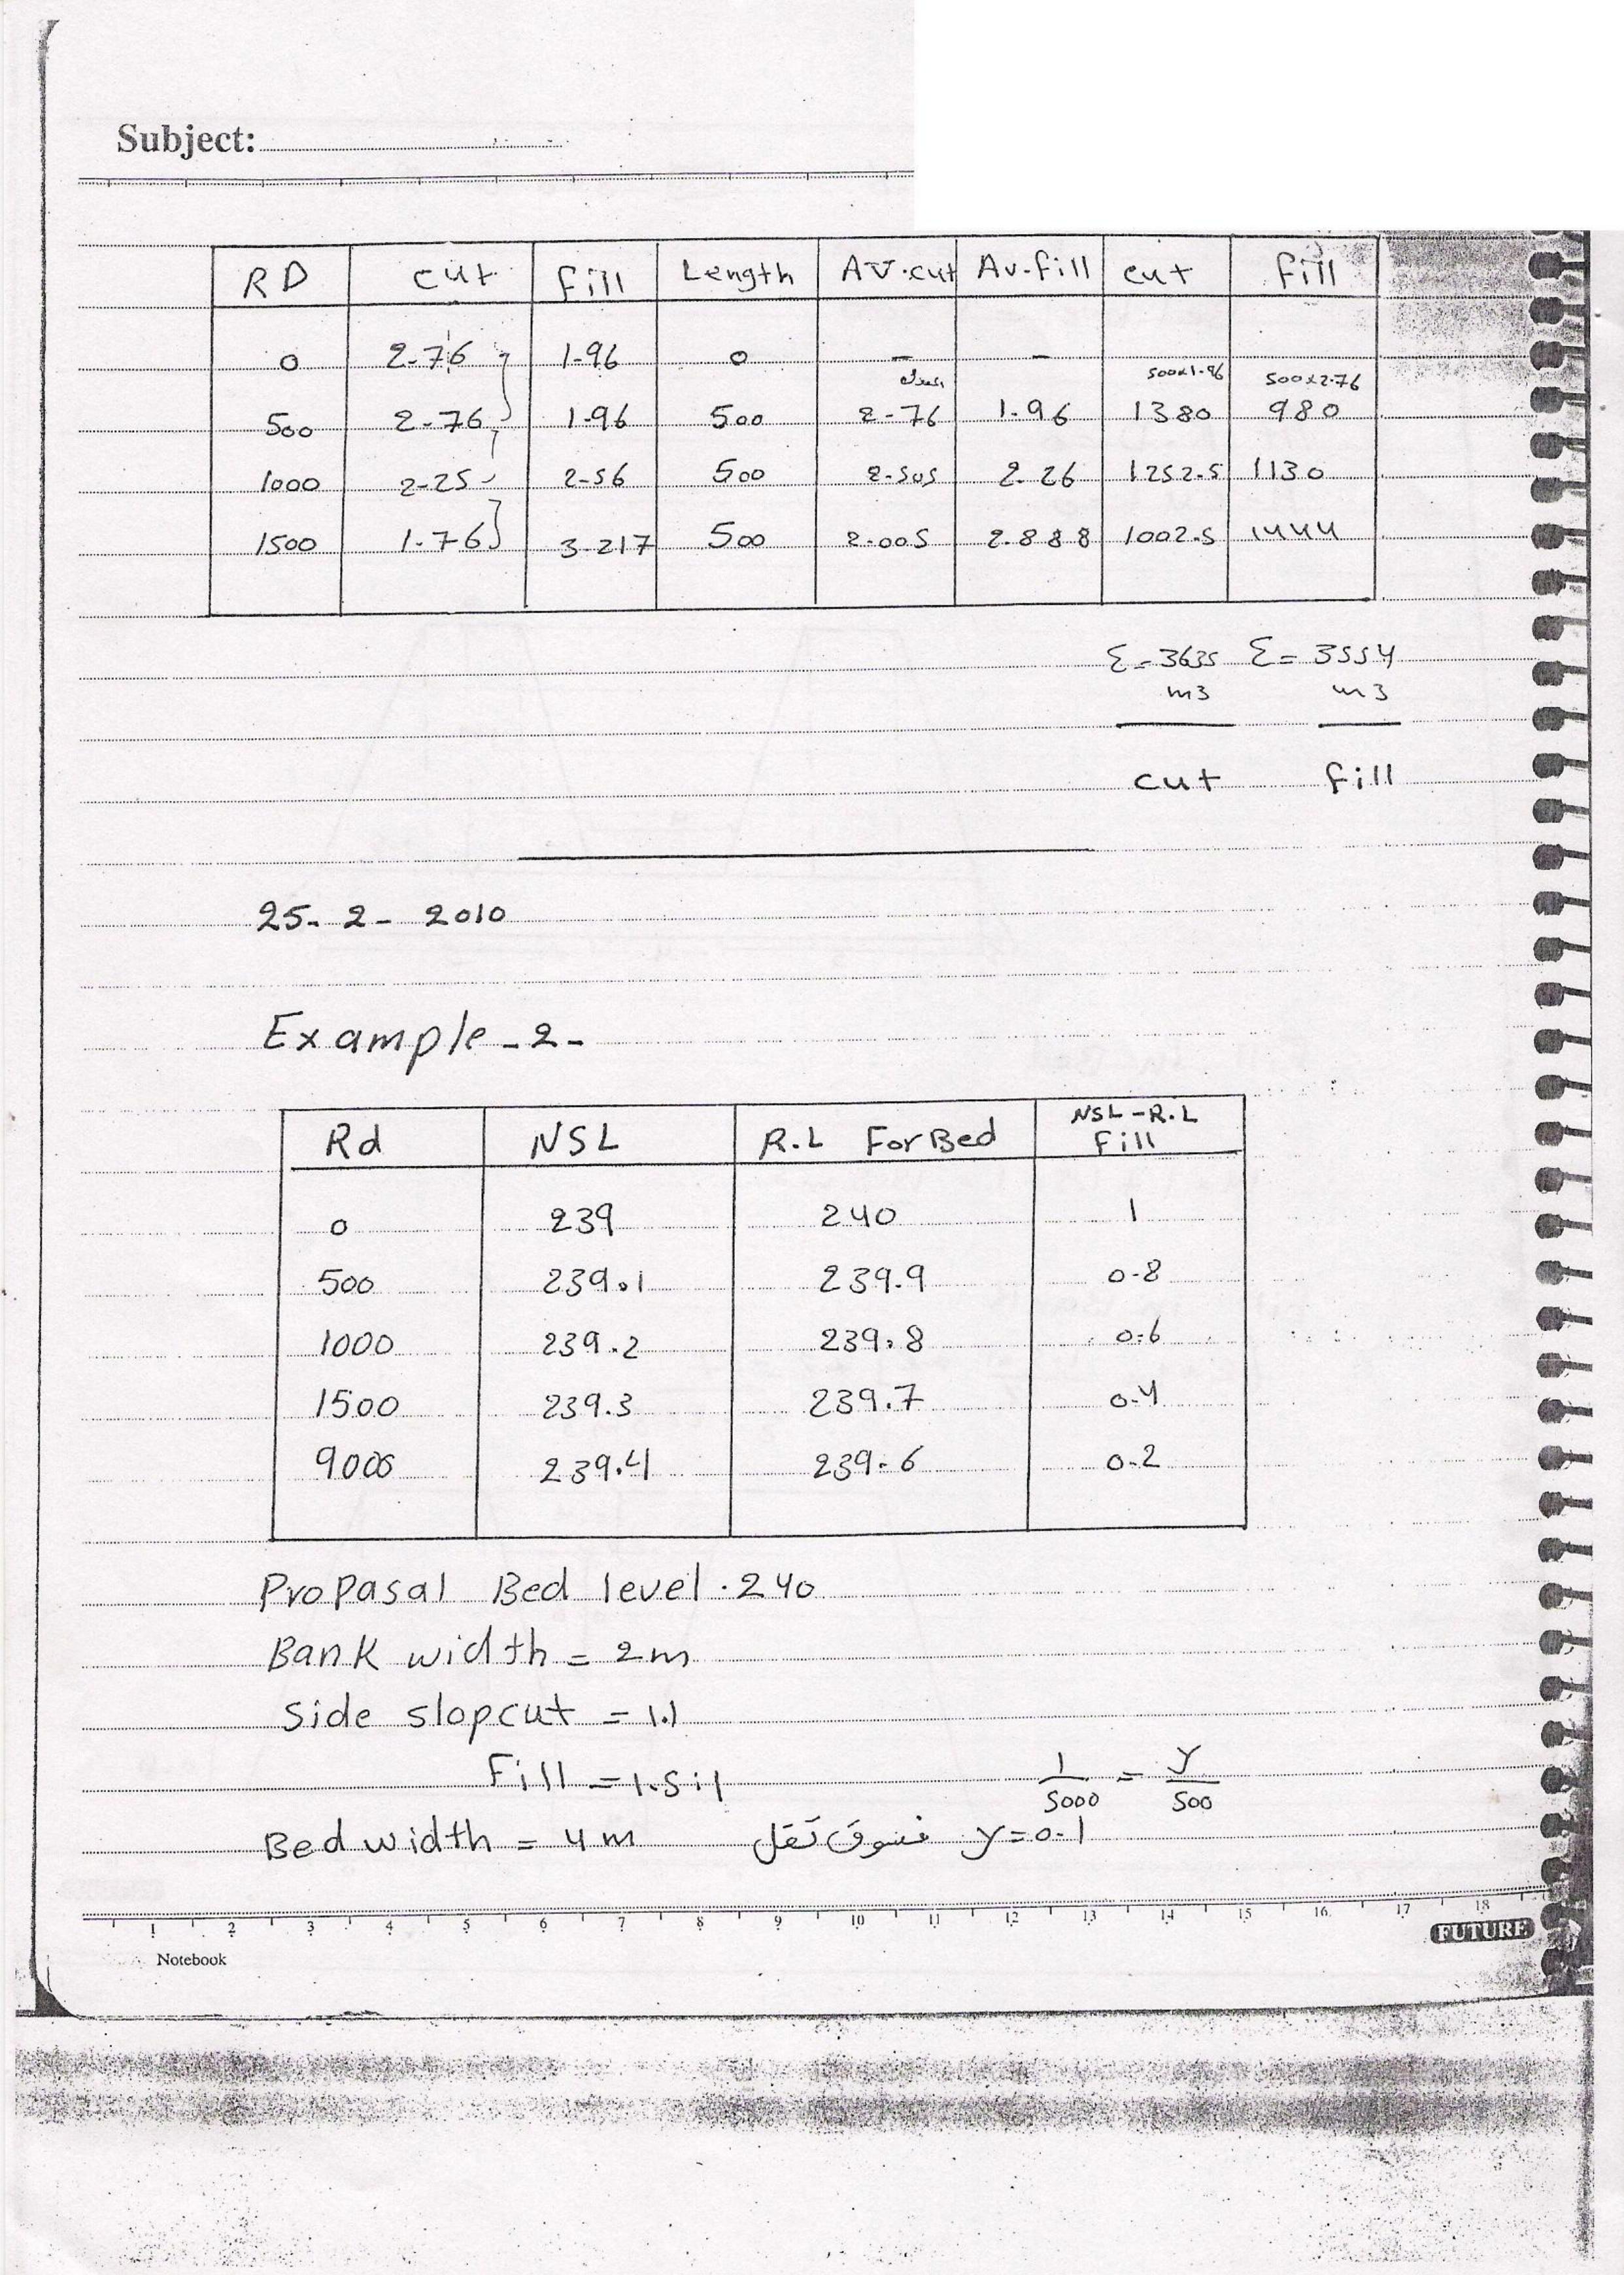 Subject:
RD cut fill Length AV.cut Av-fill cut fill
0 2-76 1-96 0 - -
500x1.96 500x2.76
500 2-76 1-96 500 2-76 1-96 1380 980
1000 2-25 2-56 500 2-505 2.26 1252.5 1130
1500 1-76 3-217 500 2-005 2.888 1002.5 1444
Σ=3635 Σ=3554
m3 m3
cut fill
25-2-2010
Example-2-
Rd NSL R.L For Bed NSL-R.L Fill
0 239 240 1
500 239.1 239.9 0-8
1000 239.2 239.8 0.6
1500 239.3 239.7 0-4
9000 239.4 239.6 0-2
Propasal Bed level.240
Bank width = 2m
Side slopcut = 1.1
Fill = 1.5:1 1/5000 = y/500
Bed width = 4m y=0.1 فسوف تقل
1 2 3 4 5 6 7 8 9 10 11 12 13 14 15 16 17 18
Notebook FUTURE